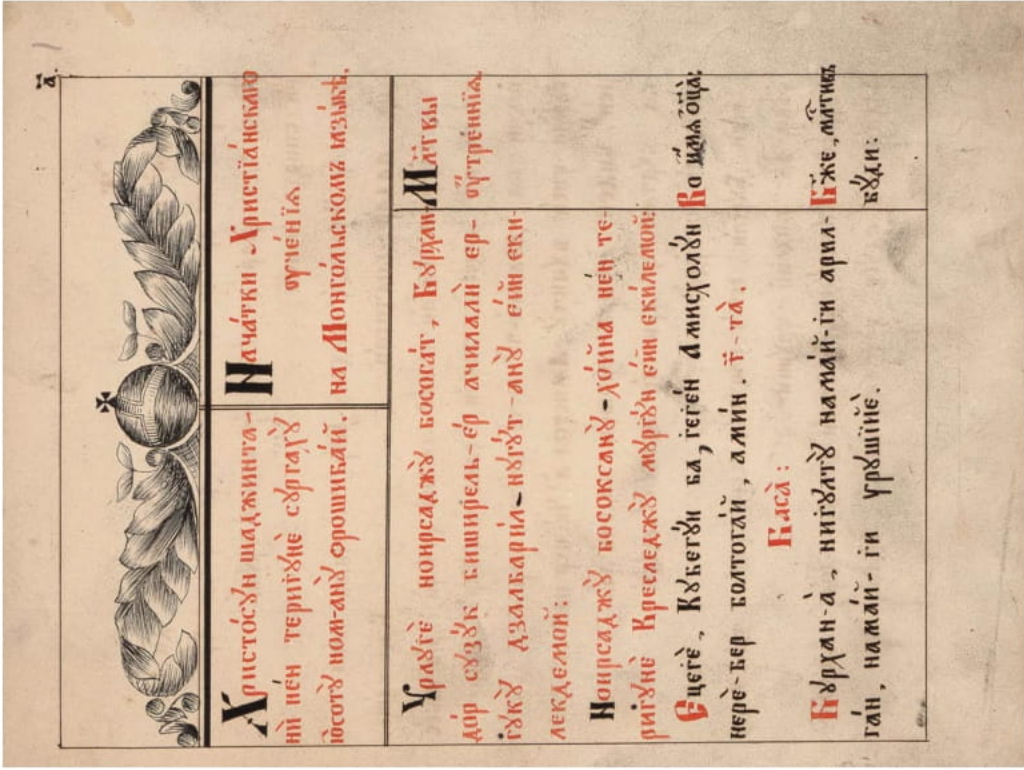 а҃.
Христо́сꙋн шаджинта-
нїй не́н теригꙋнѐ сꙋргагꙋ̀
ю҆̀сотꙋ̀ ном-анꙋ̀ орошиба́й.
Нача́тки Христїа́нскагѡ
ᲂу҆че́нїѧ
на Монго́льскомъ ꙗзы́кѣ.
Урлꙋгѐ нойрсаджꙋ̀ босога́т, Бꙋрхан-
до́р сꙋзꙋ́к биширель-е́р ачилалѝ ер-
гꙋкꙋ̀ дзалбарил-нꙋгꙋ́т-анꙋ̀ е҆́йн еки-
лекдемой:
Нойрсаджꙋ̀ босоксанꙋ̀-хо́йна не́н те-
ригꙋнѐ Креследжꙋ̀ мꙋргꙋ́н е҆́йн еки́лемой:
Ецегѐ, Кꙋбегꙋ́н ба, геге́н Амисхолꙋ́н
нерѐ-бер болтога́й, ами́н. г҃-тà.
Баса̀:
Бꙋрхан-а̀, нигꙋлтꙋ̀ нама́й-ги арил-
га́н, нама́й-ги ꙋрꙋшїйѐ.
Мл҃твы
ᲂу҆́треннїѧ.
Во и҆́мѧ ѻ҆ц҃а̀:
Бж҃е, млⷭ҇тивъ
бꙋ́ди: